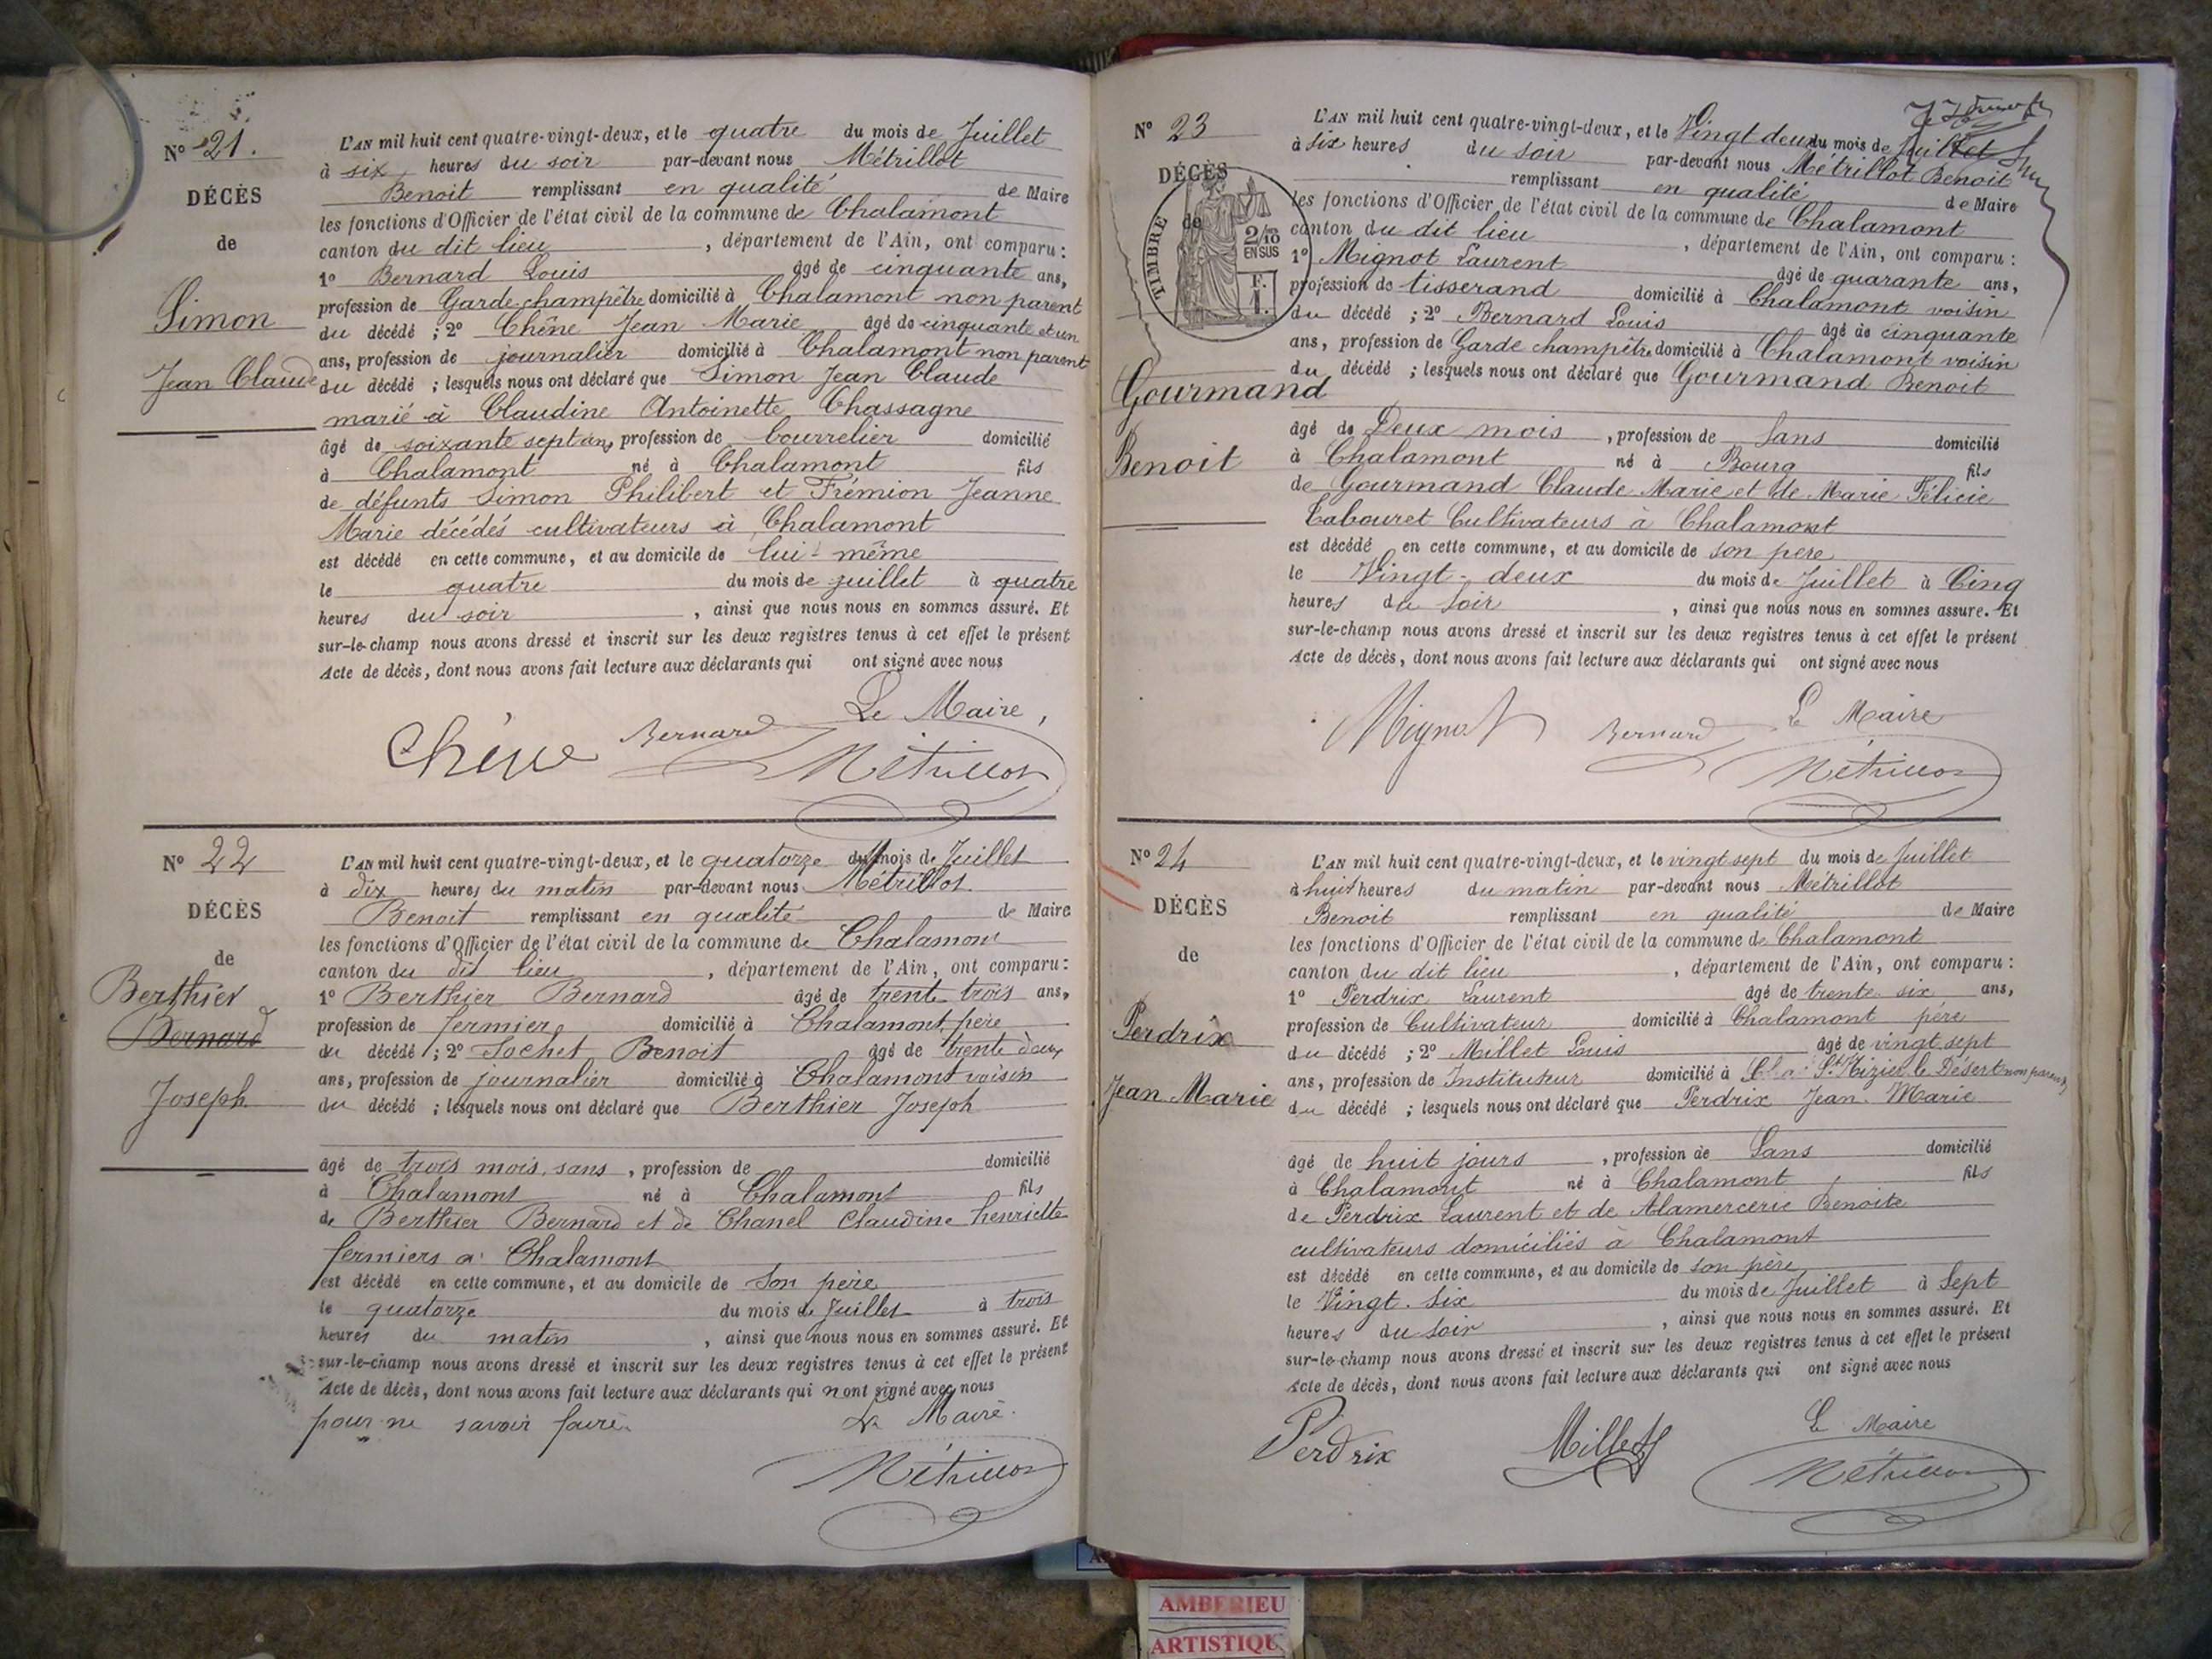 N° 21.
DÉCÈS
de
Simon
Jean Claude
L'AN mil huit cent quatre-vingt-deux, et le quatre du mois de Juillet
à six heures du soir par-devant nous Métrillot
Benoit remplissant en qualité de Maire
les fonctions d'Officier de l'état civil de la commune de Chalamont
canton du dit lieu, département de l'Ain, ont comparu :
1° Bernard Louis âgé de cinquante ans,
profession de Garde champêtre domicilié à Chalamont non parent
du décédé ; 2° Chêne Jean Marie âgé de cinquante et un
ans, profession de journalier domicilié à Chalamont non parent
du décédé ; lesquels nous ont déclaré que Simon Jean Claude
marié à Claudine Antoinette Chassagne
âgé de soixante sept ans, profession de bourrelier domicilié
à Chalamont né à Chalamont fils
de défunts Simon Philibert et Frémion Jeanne
Marie décédés cultivateurs à Chalamont
est décédé en cette commune, et au domicile de lui-même
le quatre du mois de juillet à quatre
heures du soir, ainsi que nous nous en sommes assuré. Et
sur-le-champ nous avons dressé et inscrit sur les deux registres tenus à cet effet le présent
Acte de décès, dont nous avons fait lecture aux déclarants qui ont signé avec nous
Le Maire,
Chêne Bernard Métrillot
N° 22
DÉCÈS
de
Berthier
Bernard
Joseph
L'AN mil huit cent quatre-vingt-deux, et le quatorze du mois de Juillet
à dix heures du matin par-devant nous Métrillot
Benoit remplissant en qualité de Maire
les fonctions d'Officier de l'état civil de la commune de Chalamont
canton du dit lieu, département de l'Ain, ont comparu :
1° Berthier Bernard âgé de trente trois ans,
profession de fermier domicilié à Chalamont, père
du décédé ; 2° Sochet Benoit âgé de trente deux
ans, profession de journalier domicilié à Chalamont voisin
du décédé ; lesquels nous ont déclaré que Berthier Joseph
âgé de trois mois, sans, profession de domicilié
à Chalamont né à Chalamont fils
de Berthier Bernard et de Chanel Claudine henriette
fermiers à Chalamont
est décédé en cette commune, et au domicile de Son père
le quatorze du mois de Juillet à trois
heures du matin, ainsi que nous nous en sommes assuré. Et
sur-le-champ nous avons dressé et inscrit sur les deux registres tenus à cet effet le présent
Acte de décès, dont nous avons fait lecture aux déclarants qui n'ont signé avec nous
pour ne savoir faire. Le Maire.
Métrillot
N° 23
DÉCÈS
de
TIMBRE
2/10
EN SUS
F.
1.
Gourmand
Benoit
L'AN mil huit cent quatre-vingt-deux, et le Vingt deux du mois de Juillet
à six heures du soir par-devant nous Métrillot Benoit
remplissant en qualité de Maire
les fonctions d'Officier de l'état civil de la commune de Chalamont
canton du dit lieu, département de l'Ain, ont comparu :
1° Mignot Laurent âgé de quarante ans,
profession de tisserand domicilié à Chalamont voisin
du décédé ; 2° Bernard Louis âgé de cinquante
ans, profession de Garde champêtre domicilié à Chalamont voisin
du décédé ; lesquels nous ont déclaré que Gourmand Benoit
âgé de Deux mois, profession de Sans domicilié
à Chalamont né à Bourg fils
de Gourmand Claude Marie et de Marie Félicie
Tabouret Cultivateurs à Chalamont
est décédé en cette commune, et au domicile de son pere
le Vingt-deux du mois de Juillet à Cinq
heures du Soir, ainsi que nous nous en sommes assuré. Et
sur-le-champ nous avons dressé et inscrit sur les deux registres tenus à cet effet le présent
Acte de décès, dont nous avons fait lecture aux déclarants qui ont signé avec nous
Le Maire
Mignot Bernard Métrillot
N° 24
DÉCÈS
de
Perdrix
Jean Marie
L'AN mil huit cent quatre-vingt-deux, et le vingt sept du mois de Juillet
à huit heures du matin par-devant nous Métrillot
Benoit remplissant en qualité de Maire
les fonctions d'Officier de l'état civil de la commune de Chalamont
canton du dit lieu, département de l'Ain, ont comparu :
1° Perdrix Laurent âgé de trente six ans,
profession de Cultivateur domicilié à Chalamont père
du décédé ; 2° Millet Louis âgé de vingt sept
ans, profession de Instituteur domicilié à St Nizier le Désert non parent
du décédé ; lesquels nous ont déclaré que Perdrix Jean Marie
âgé de huit jours, profession de Sans domicilié
à Chalamont né à Chalamont fils
de Perdrix Laurent et de Alamercerie Benoite
cultivateurs domiciliés à Chalamont
est décédé en cette commune, et au domicile de son père
le Vingt-Six du mois de Juillet à Sept
heures du Soir, ainsi que nous nous en sommes assuré. Et
sur-le-champ nous avons dressé et inscrit sur les deux registres tenus à cet effet le présent
Acte de décès, dont nous avons fait lecture aux déclarants qui ont signé avec nous
Le Maire
Perdrix Millet Métrillot
AMBERIEU
ARTISTIQU